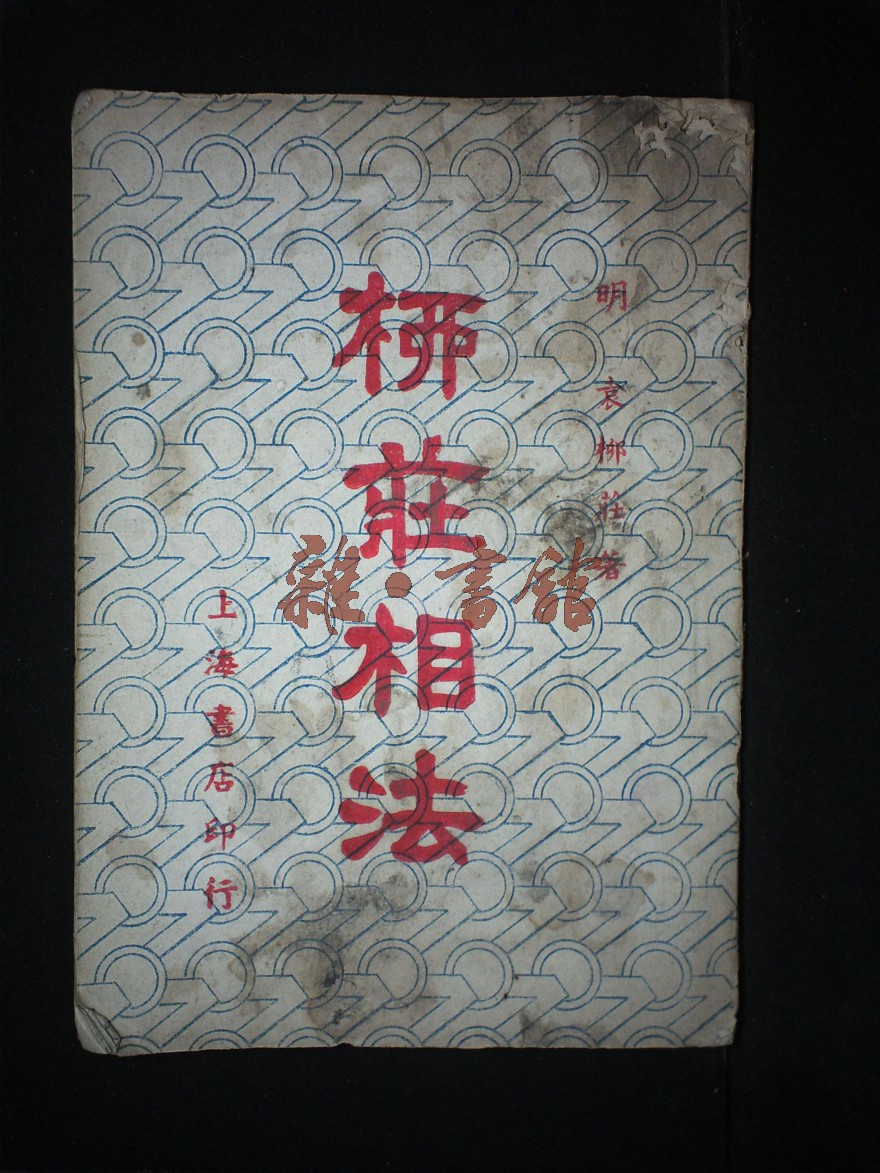 明 袁柳莊著
柳莊相法
上海書店印行
雜·書館